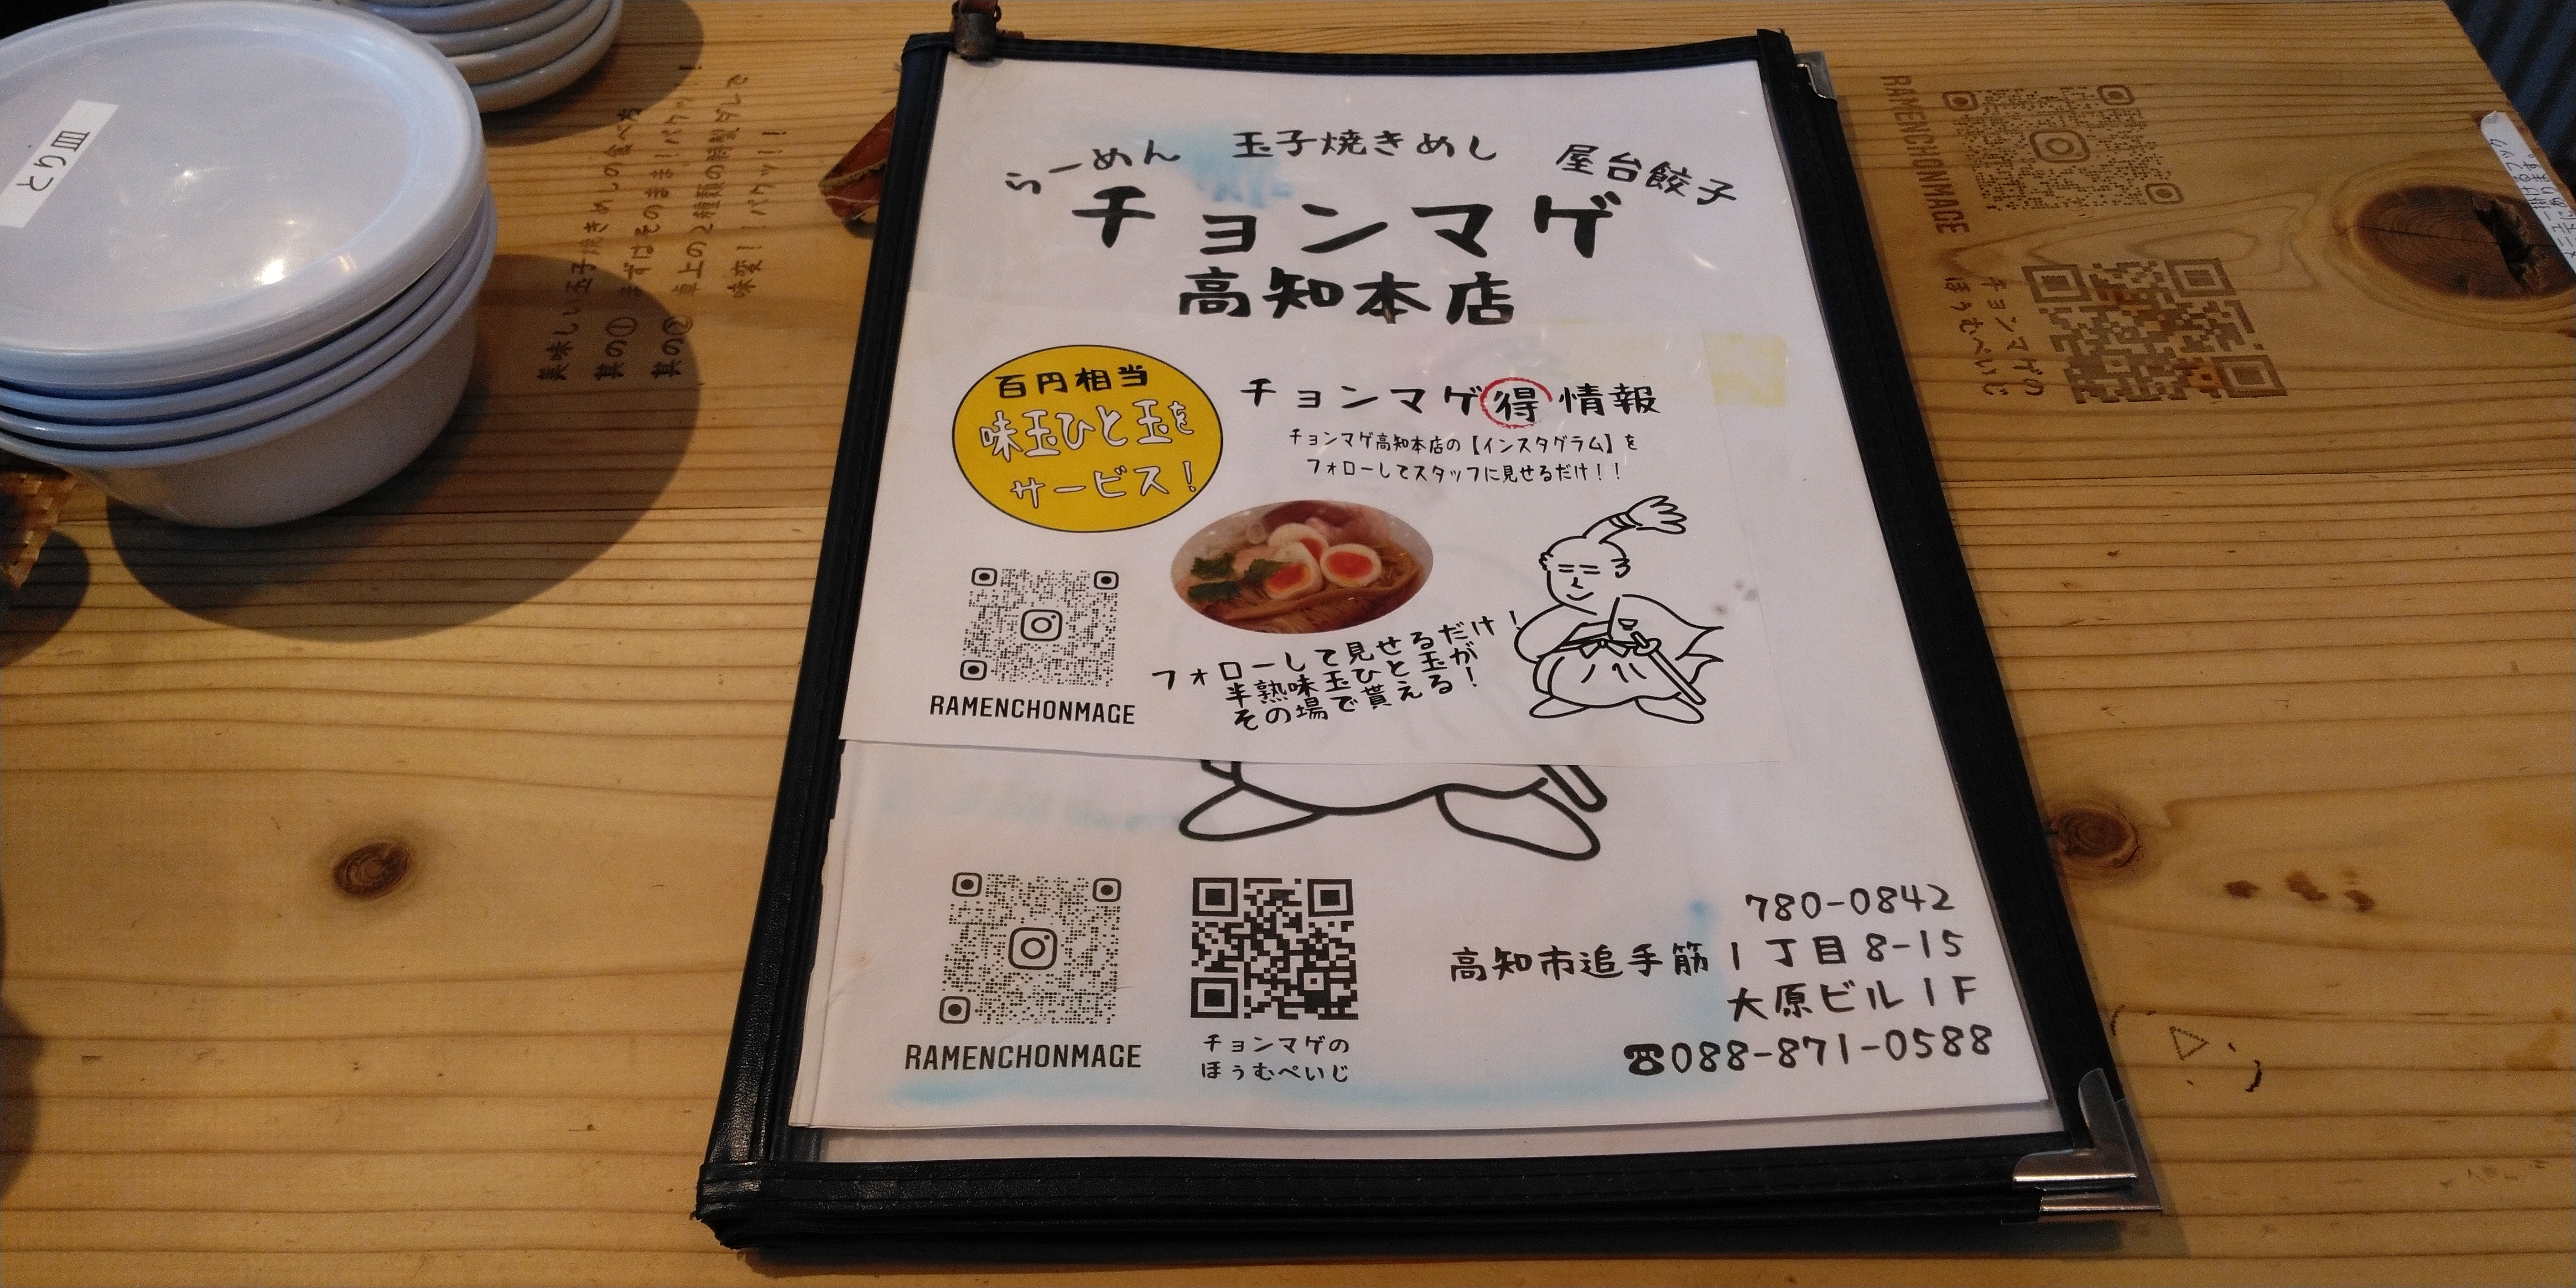 らーめん 玉子焼きめし 屋台餃子
チョンマゲ
高知本店
百円相当
味玉ひと玉を
サービス！
チョンマゲ得情報
チョンマゲ高知本店の【インスタグラム】を
フォローしてスタッフに見せるだけ！！
フォローして見せるだけ！
半熟味玉ひと玉が
その場で貰える！
RAMENCHONMAGE
RAMENCHONMAGE
チョンマゲの
ほうむぺいじ
780-0842
高知市追手筋1丁目8-15
大原ビル1F
☎088-871-0588
とり皿
美味しい玉子焼きめしの食べ方
其の① まずはそのまま！パクッ！
其の② 卓上の2種類の特製ダレで
味変！！パクッ！！
RAMENCHONMAGE
チョンマゲの
ほうむぺいじ